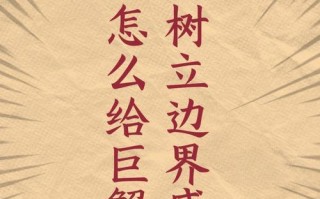 怎么给巨
树立边界